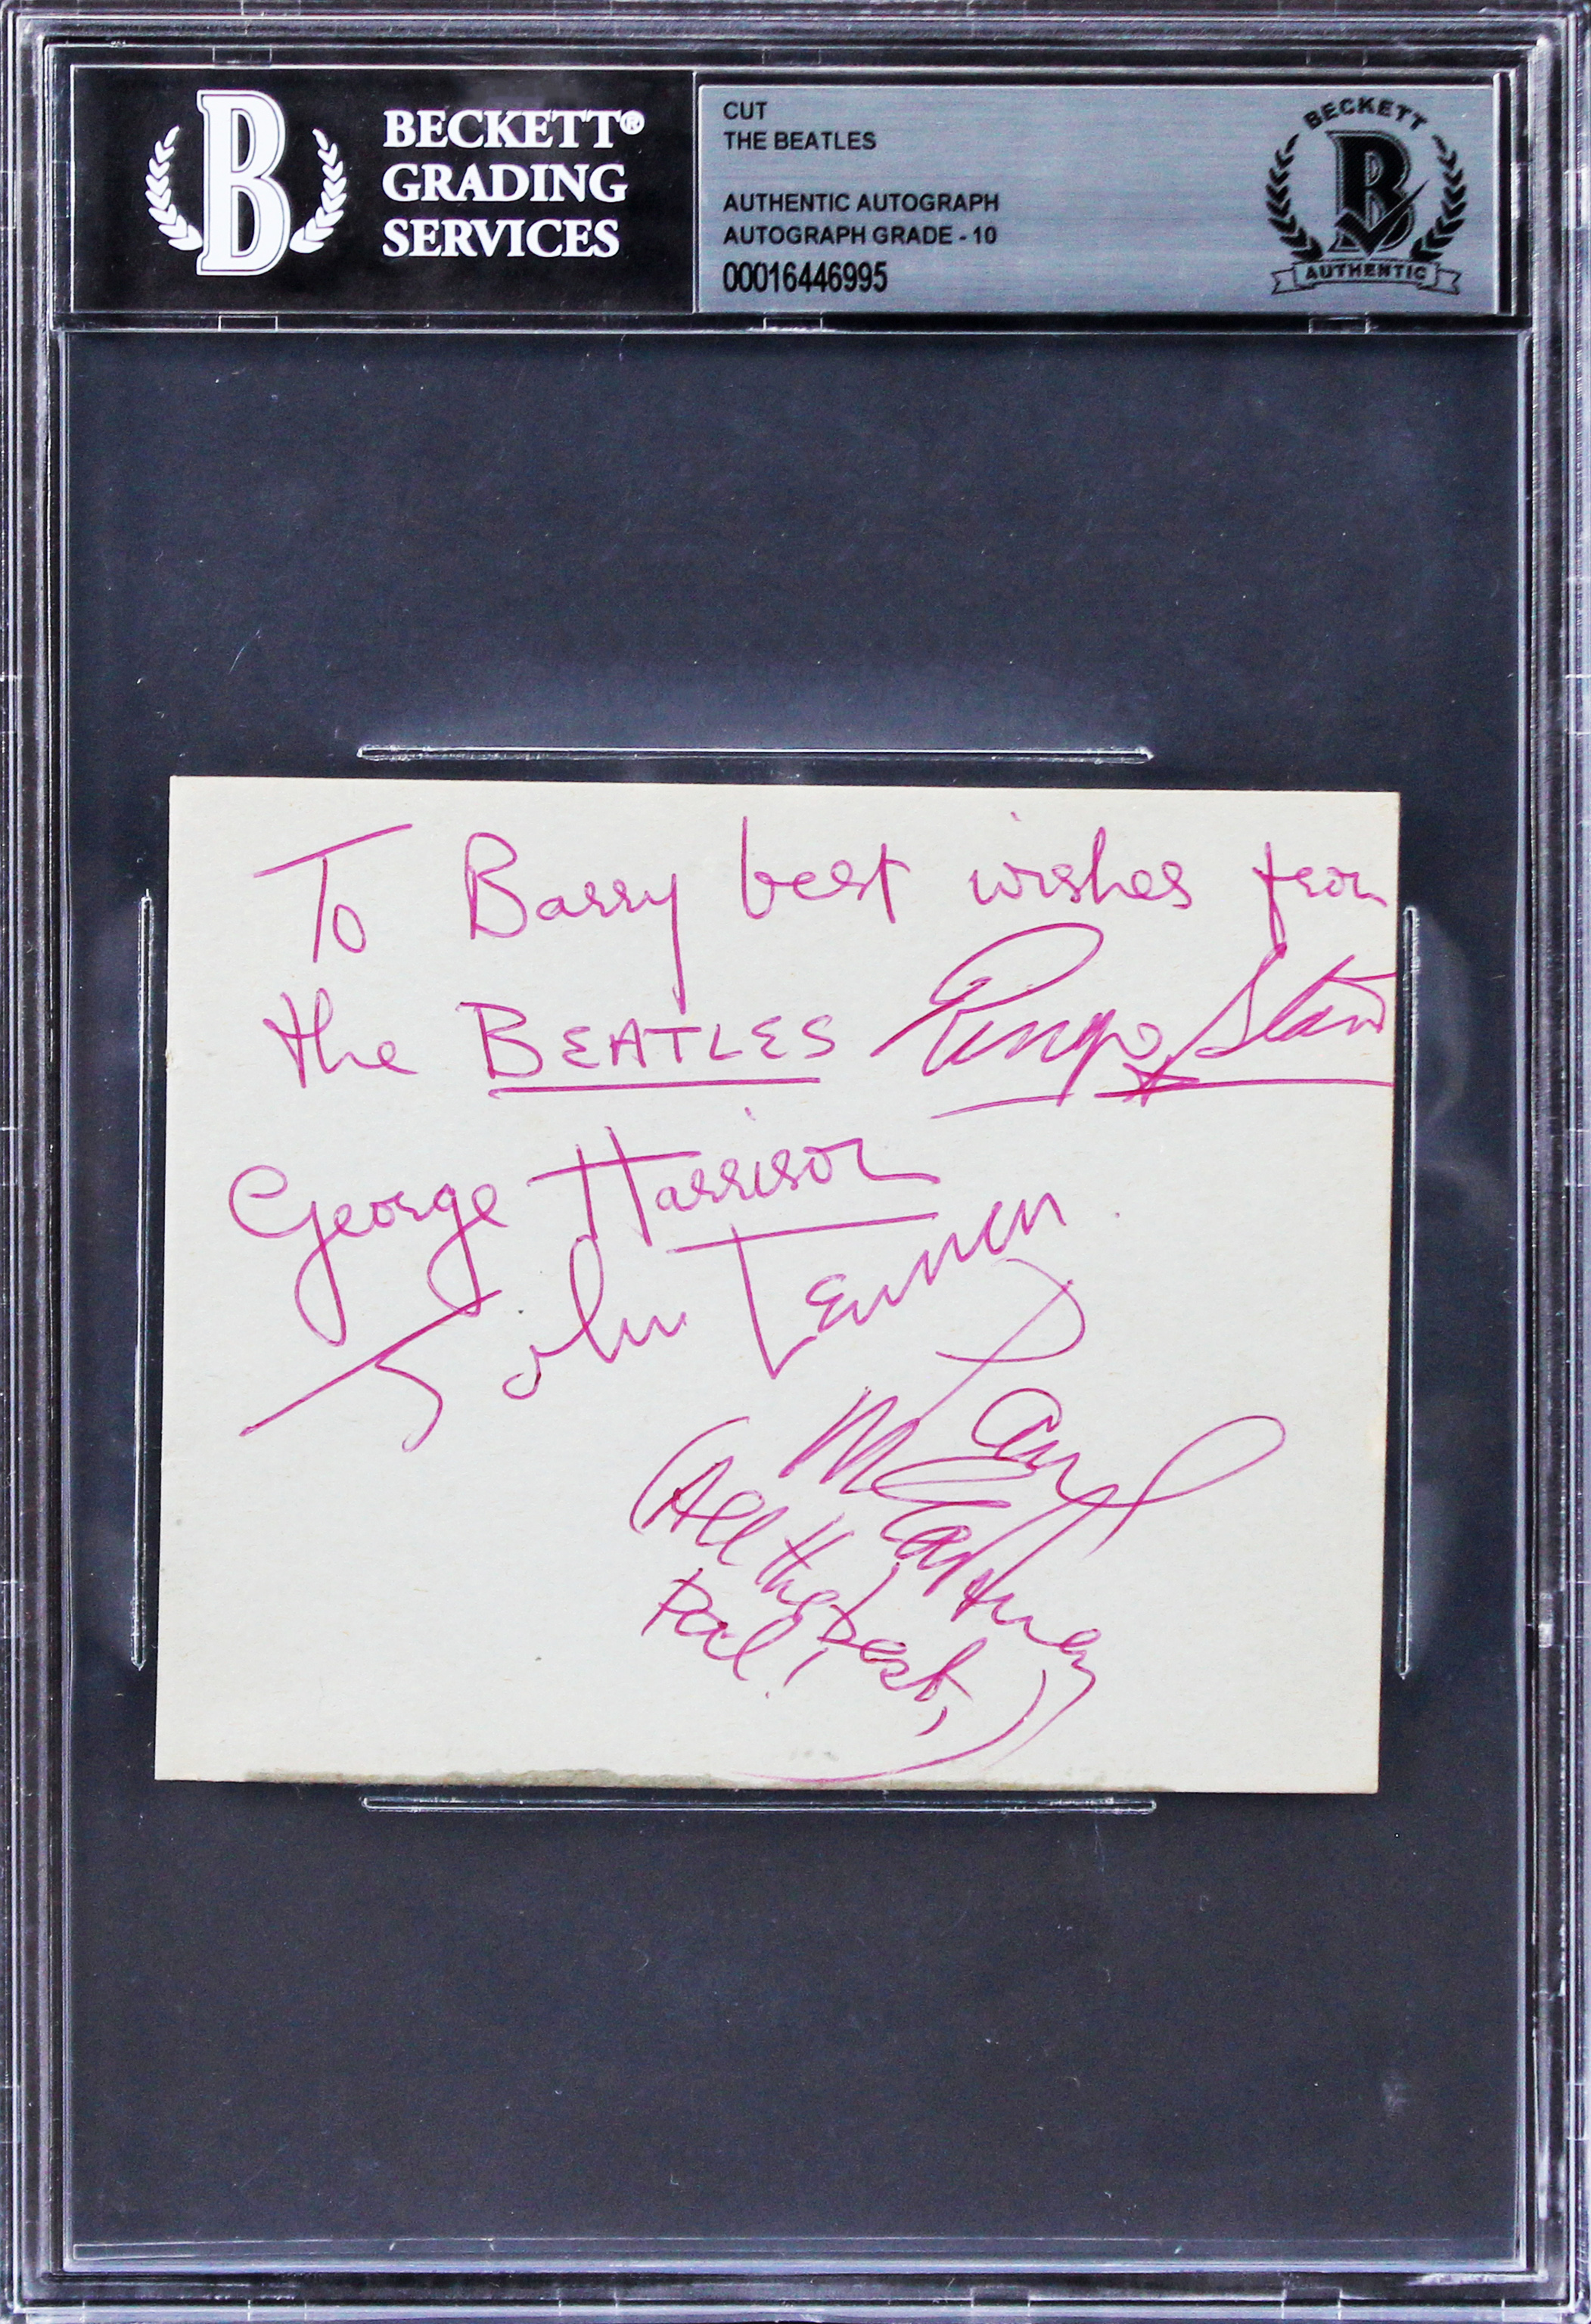 B
BECKETT®
GRADING
SERVICES
CUT
THE BEATLES
AUTHENTIC AUTOGRAPH
AUTOGRAPH GRADE - 10
00016446995
BECKETT
B
AUTHENTIC
To Barry best wishes from
the BEATLES Ringo Starr
George Harrison
John Lennon
Paul
McCartney
(All the best,
Pal!)